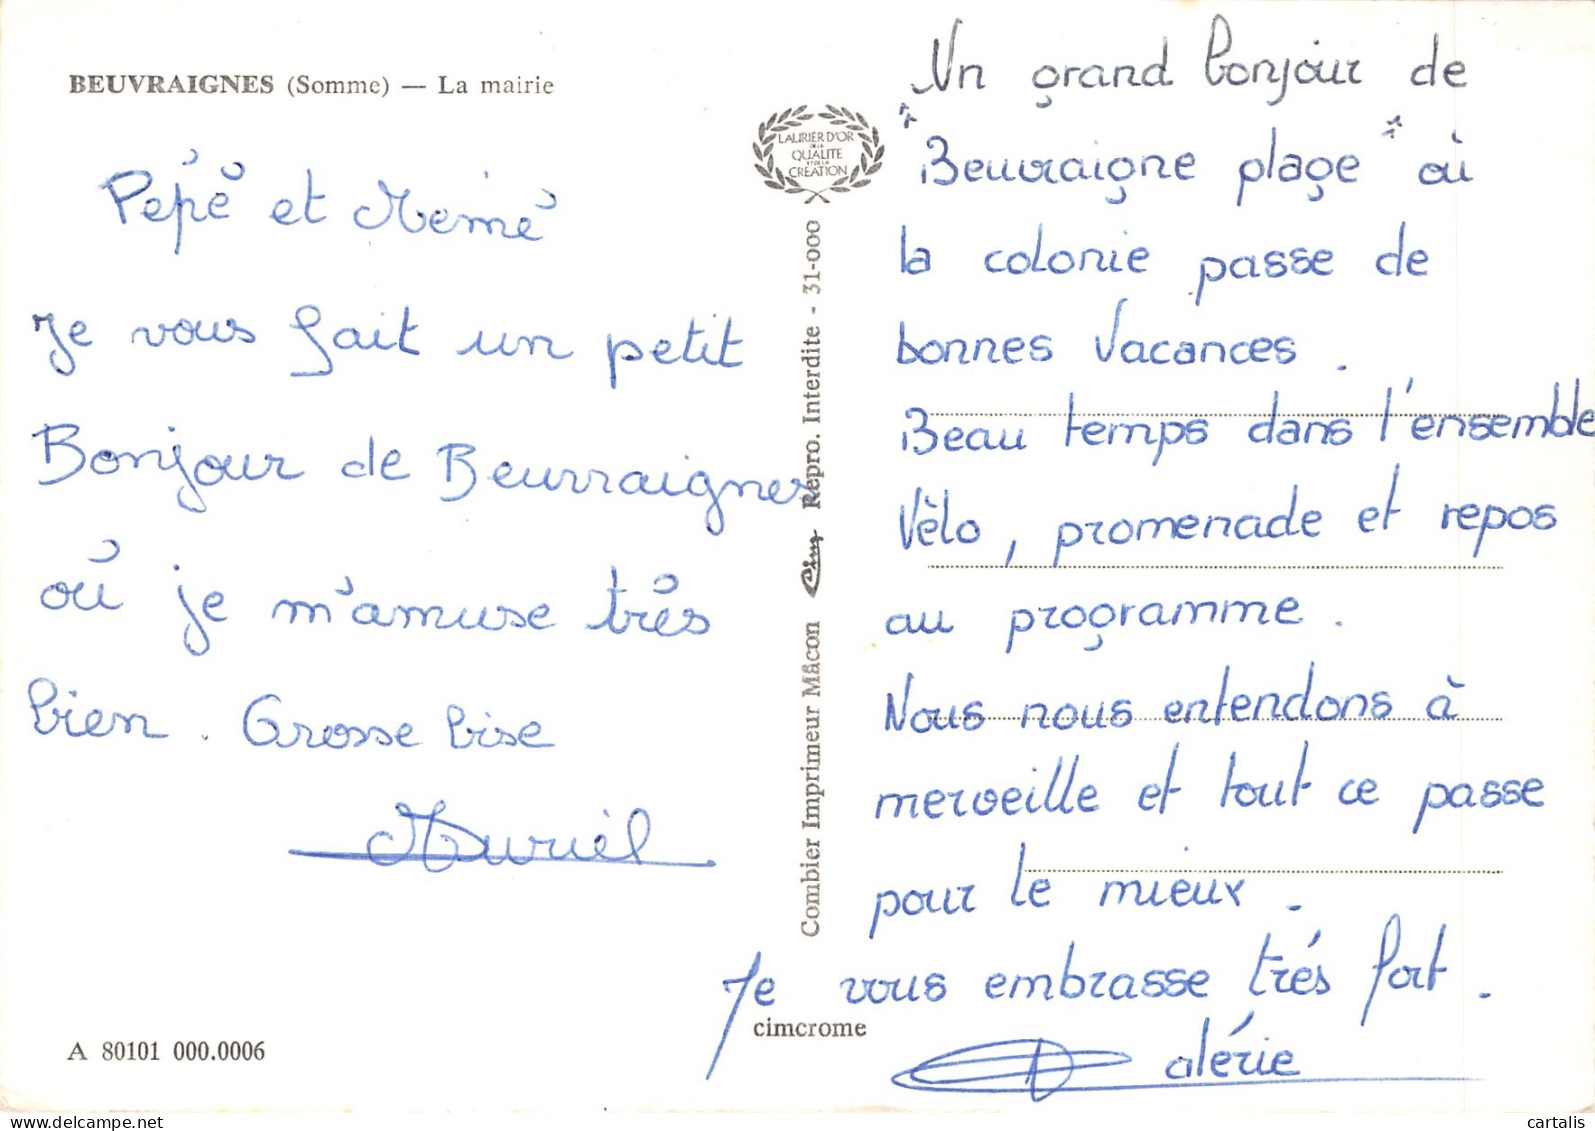 BEUVRAIGNES (Somme) — La mairie
Pépé et Mémé
Je vous fait un petit
Bonjour de Beuvraignes
où je m'amuse trés
bien. Grosse bise
Muriel
A 80101 000.0006
LAURIER D'OR
DE LA
QUALITE
ET DE LA
CREATION
Combier Imprimeur Mâcon Cim Repro. Interdite - 31-000
cimcrome
Un grand bonjour de
"Beuvraigne plage" où
la colonie passe de
bonnes vacances.
Beau temps dans l'ensemble
Vèlo, promenade et repos
au programme.
Nous nous entendons à
merveille et tout ce passe
pour le mieux.
Je vous embrasse trés fort.
Valérie
cartalis